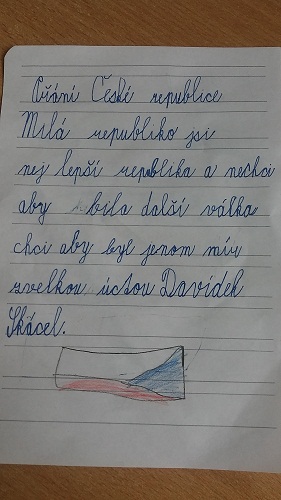 Přání České republice
Milá republiko jsi
nej lepší republika a nechci
aby bila další válka
chci aby byl jenom mír
zvelkou úctou Davídek
Skácel.